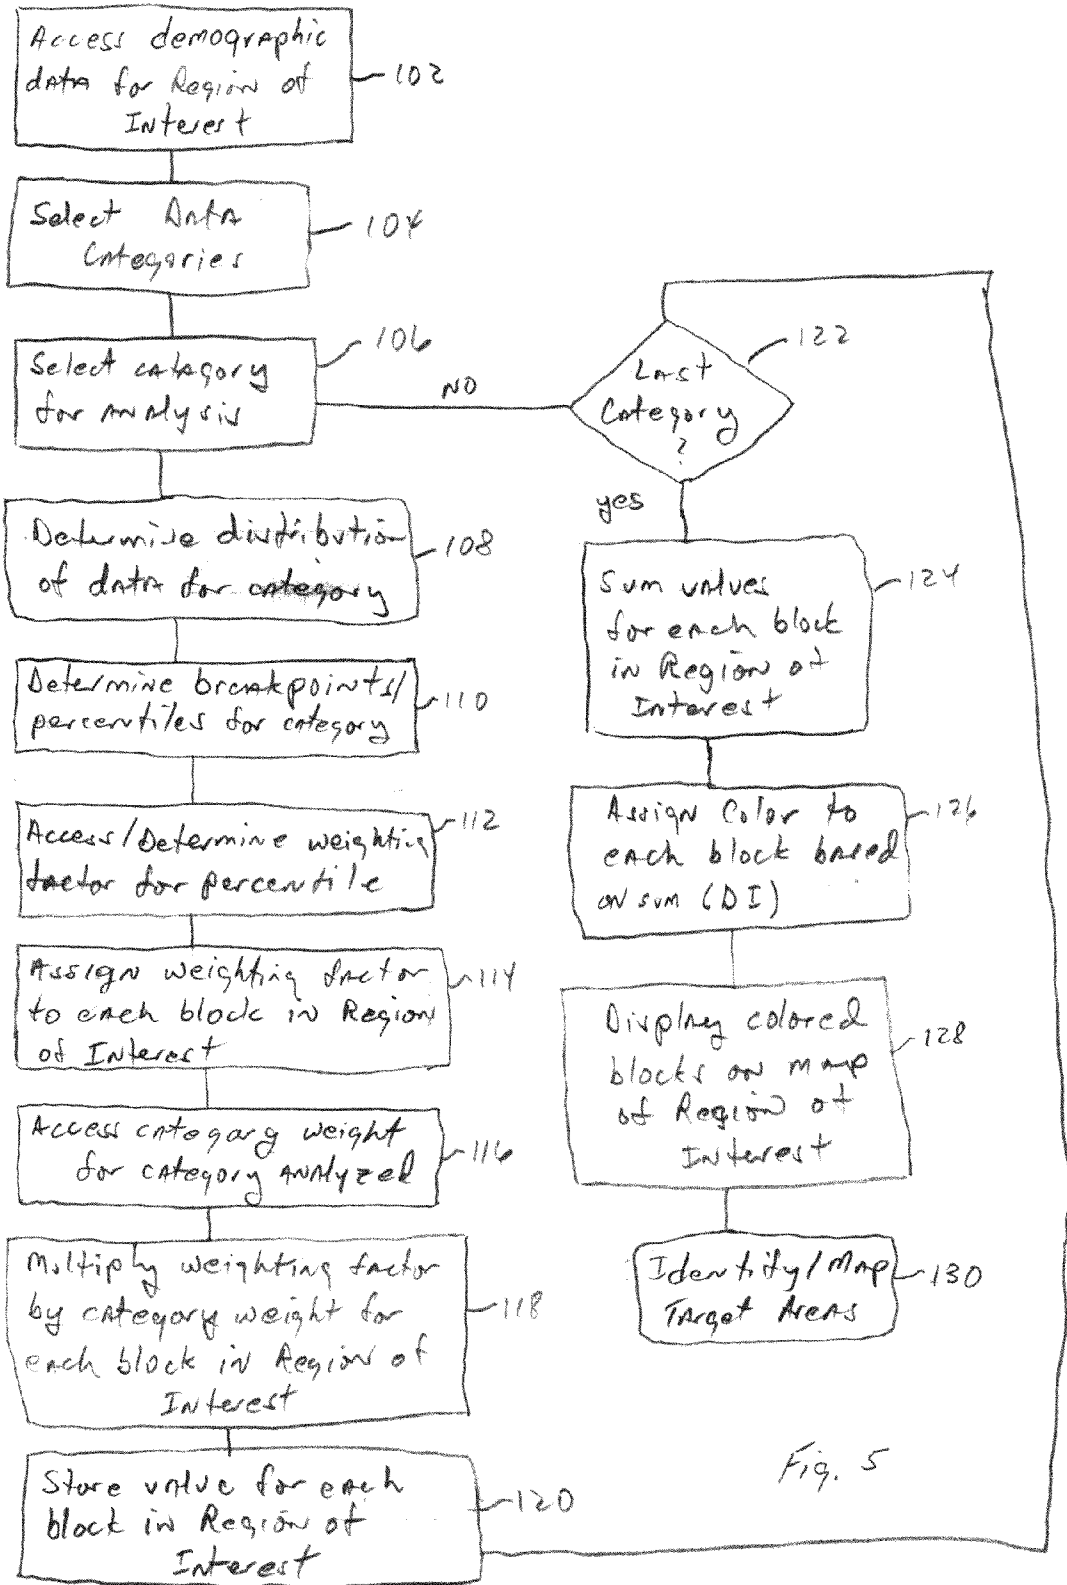 Access demographic
data for Region of
Interest
102
Select Data
Categories
104
Select category
for Analysis
106
NO
Last
Category
?
122
yes
Determine distribution
of data for category
108
Determine breakpoints/
percentiles for category
110
Access/Determine weighting
factor for percentile
112
Assign weighting factor
to each block in Region
of Interest
114
Access category weight
for category Analyzed
116
Multiply weighting factor
by category weight for
each block in Region of
Interest
118
Store value for each
block in Region of
Interest
120
Sum values
for each block
in Region of
Interest
124
Assign Color to
each block based
on sum (DI)
126
Display colored
blocks on map
of Region of
Interest
128
Identify/Map
Target Areas
130
Fig. 5